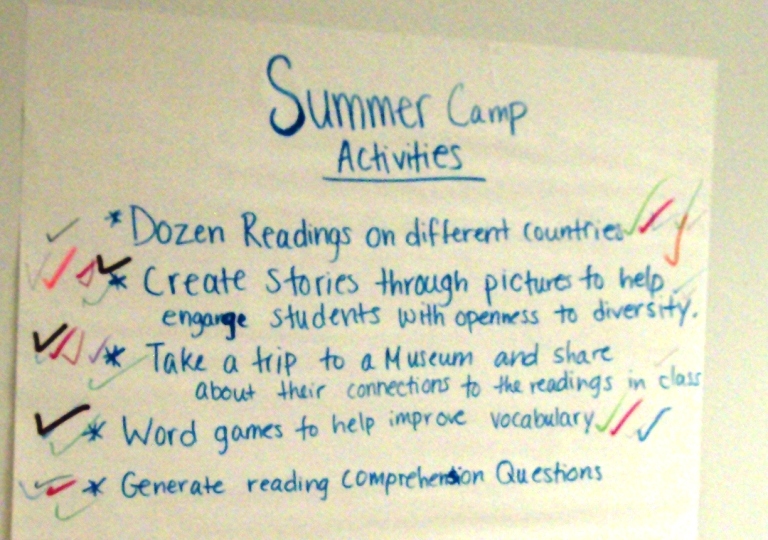 Summer Camp
Activities
* Dozen Readings on different countries
* Create Stories through pictures to help
engange students with openness to diversity.
* Take a trip to a Museum and share
about their connections to the readings in class
* Word games to help improve vocabulary
* Generate reading comprehension Questions